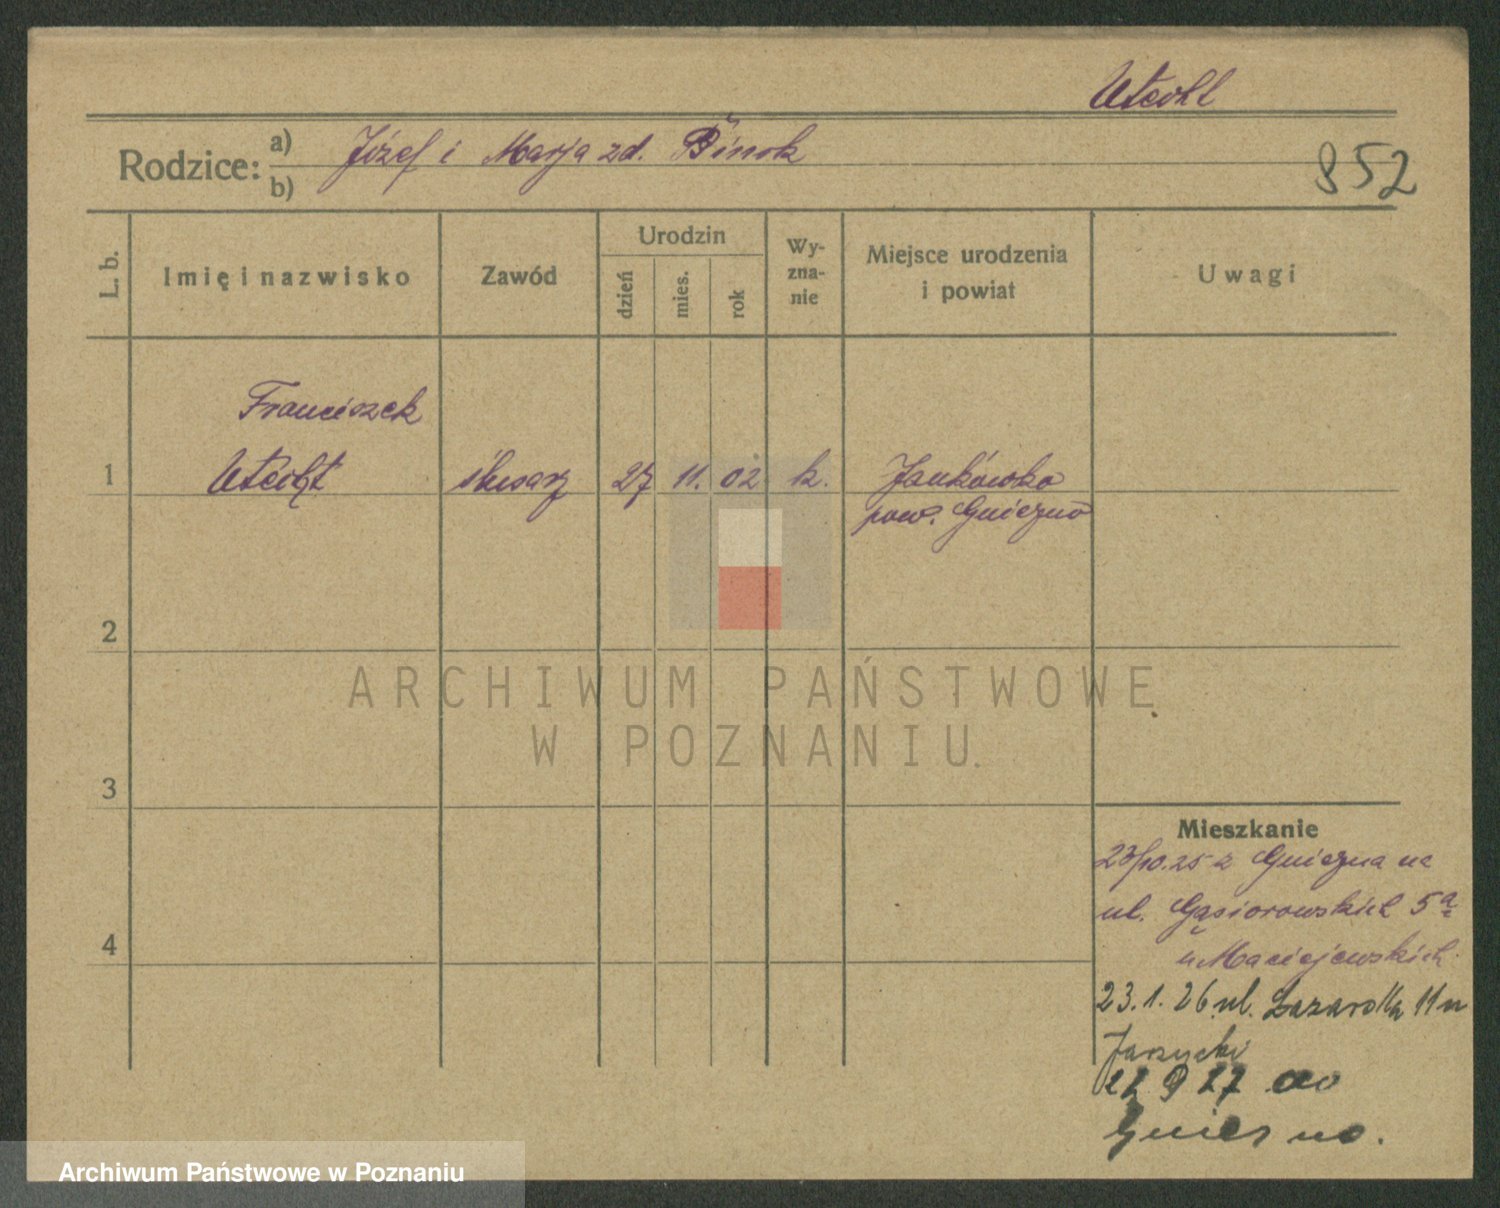 Utecht
Rodzice:
a) Józef i Marja zd. Binek
b)
852
L. b.
Imię i nazwisko
Zawód
Urodzin
dzień
mies.
rok
Wy-
zna-
nie
Miejsce urodzenia
i powiat
Uwagi
Franciszek
1 Utecht ślusarz 27 11. 02 k. Jankówko
pow. Gniezno
2
3
4
ARCHIWUM PAŃSTWOWE
W POZNANIU
Mieszkanie
23/10.25 z Gniezna na
ul. Gąsiorowskich 5a
u Maciejewskich
23.1.26 ul. 11 u
Jarzycki
22 9 27 do
Gniezno.
Archiwum Państwowe w Poznaniu